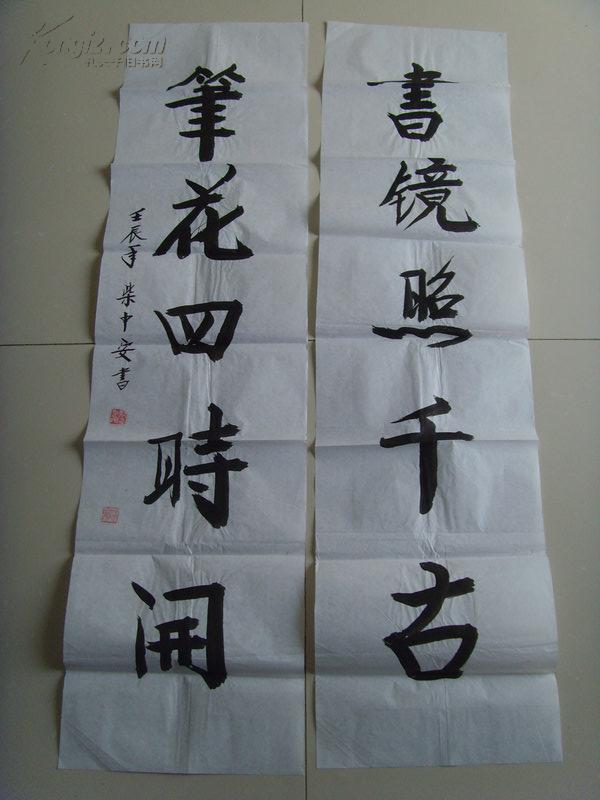 書镜照千古
筆花四時開
壬辰年 柴中安書
Kongfz.com
孔夫子旧书网